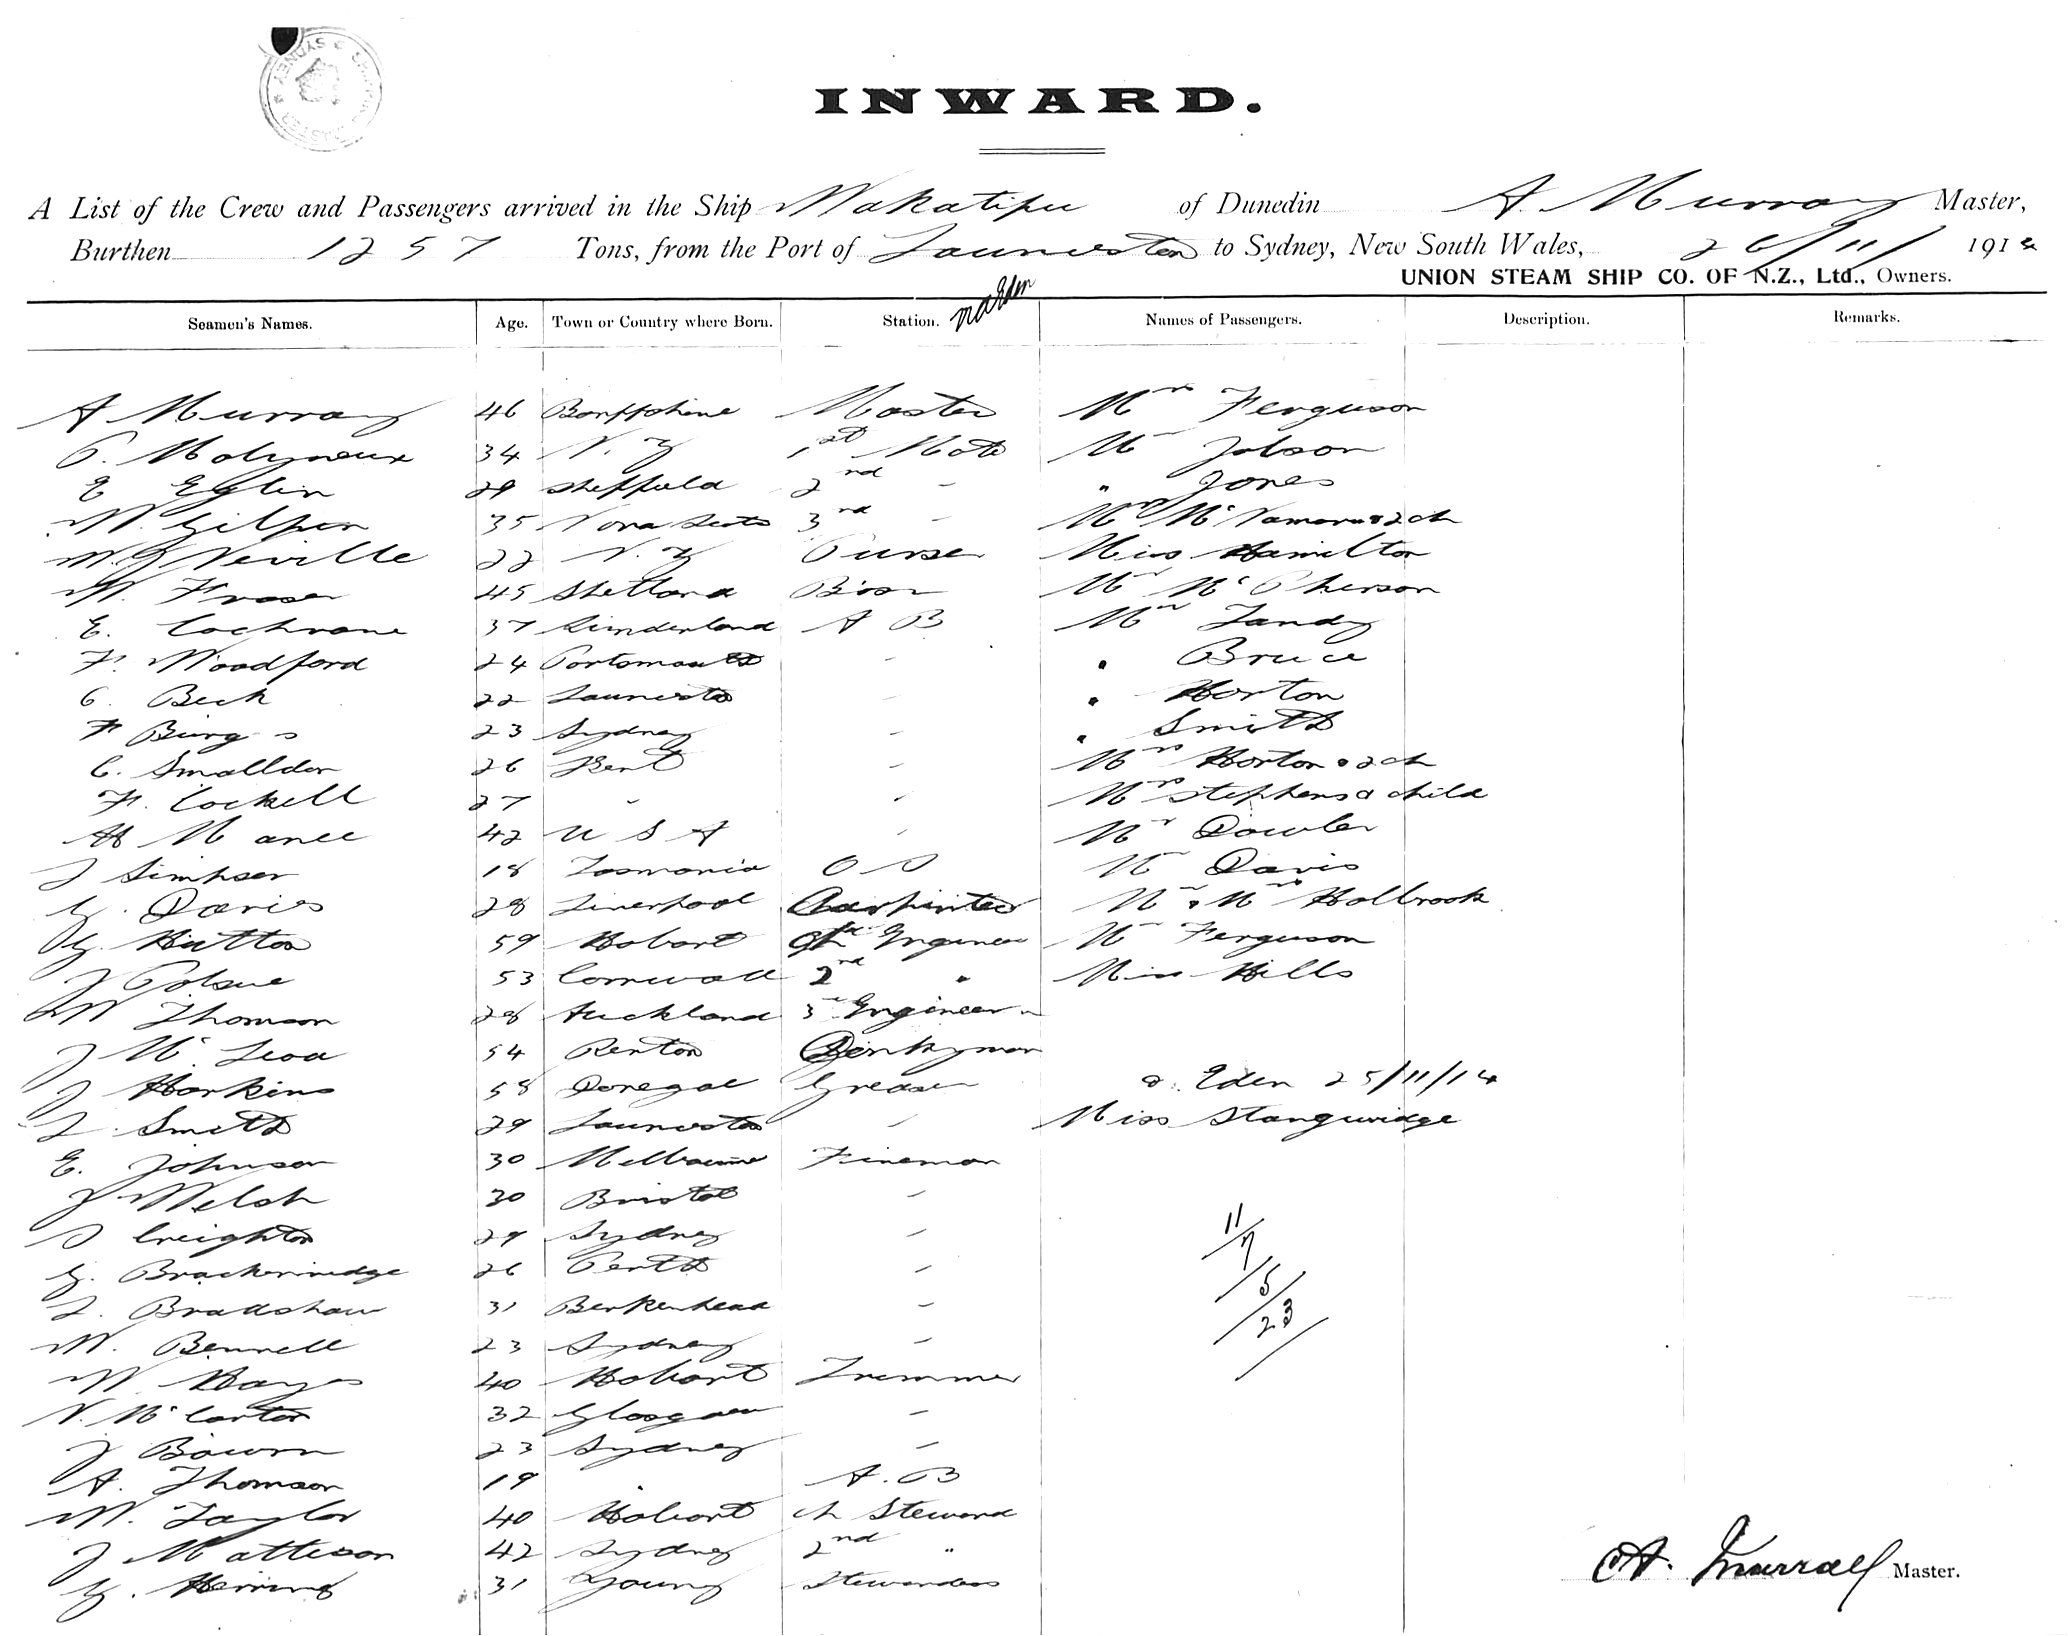 INWARD.
A List of the Crew and Passengers arrived in the Ship Wakatipu of Dunedin A. Murray Master,
Burthen 1257 Tons, from the Port of Launceston to Sydney, New South Wales, 26/11/ 1914
UNION STEAM SHIP CO. OF N.Z., Ltd., Owners.
Seamen's Names. Age. Town or Country where Born. Station. Names of Passengers. Description. Remarks.
A Murray 46 Banffshire Master Mrs Ferguson
P. Molyneux 34 N. Z 1st Mate Mr Jobson
E Eglin 29 Sheffield 2nd - " Jones
W. Gilpin 35 Nova Scota 3rd - Mrs McNamara & 2 ch
W. J Neville 22 N. Z Purser Miss Hamilton
W. Fraser 45 Shetland Bosn Mr McPherson
E. Cochrane 37 Sunderland A B Mr Tandy
F. Woodford 24 Portsmouth " " Bruce
C. Beck 22 Launceston " " Horton
F Burg s 23 Sydney " " Smith
C. Smalldon 26 Kent " Mrs Horton & 2 ch
F. Cockell 27 " " Mrs Stephens & child
42 U S A " Mr Dowler
J Simpson 18 Tasmania O S Mr Davis
G. Davies 28 Liverpool Carpinter Mr & Mrs Holbrook
G. Hutton 59 Hobart Ch Engineer Mr Ferguson
J 53 Cornwall 2nd " Miss Hills
W Thomson 28 Auckland 3rd Engineer
J McLeod 54 Renton Donkyman
J Harkins 58 Donegal Greaser a. Eden 25/11/14
J. Smith 29 Launceston " Miss Stangwidge
E. Johnson 30 Melbourne Fireman
J Welsh 30 Bristol "
S Creighton 29 Sydney "
G. Brackenridge 26 Perth "
J. Bradshaw 31 Berkenhead "
W. Bennell 23 Sydney "
W. Hayes 40 Hobart Trimmer
N. McCarter 32 Glasgow "
J Bourn 23 Sydney "
A. Thomson 19 " A. B
W. Taylor 40 Hobart Ch Steward
J Matteson 42 Sydney 2nd "
G. Herring 31 Young Stewardess
11/7/5/23/
A. Murray Master.